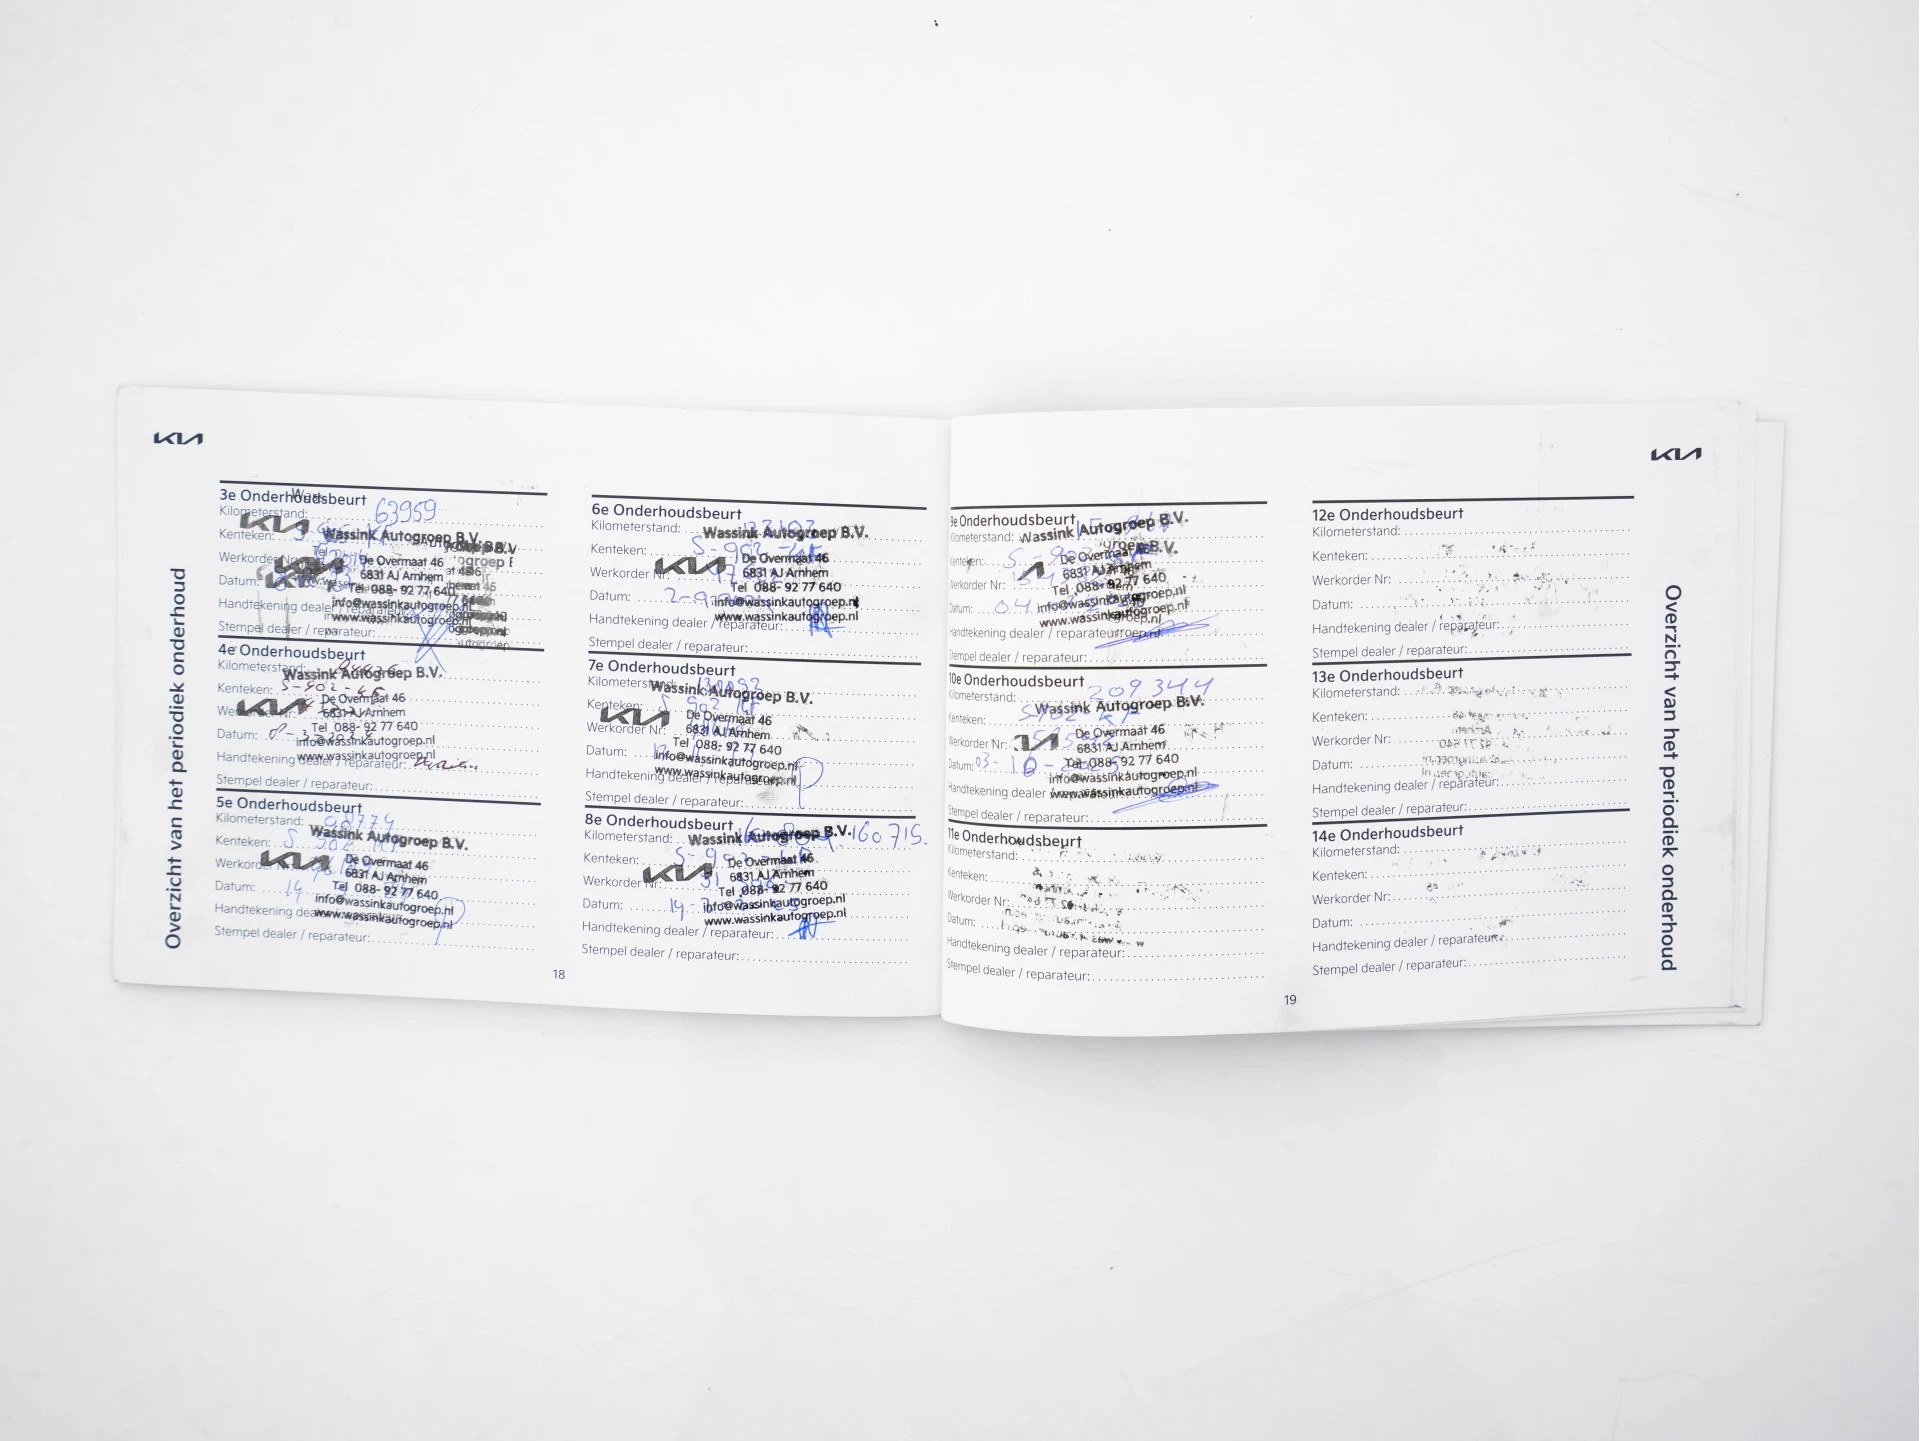 KIA
Overzicht van het periodiek onderhoud
3e Onderhoudsbeurt
Kilometerstand: 63959
Kenteken:
Werkorder Nr:
Datum:
Handtekening dealer / reparateur:
Stempel dealer / reparateur:
KIA
Wassink Autogroep B.V.
De Overmaat 46
6831 AJ Arnhem
Tel. 088- 92 77 640
info@wassinkautogroep.nl
www.wassinkautogroep.nl
4e Onderhoudsbeurt
Kilometerstand:
Kenteken: S-902-KF
Datum:
Handtekening dealer / reparateur:
Stempel dealer / reparateur:
KIA
Wassink Autogroep B.V.
De Overmaat 46
6831 AJ Arnhem
Tel 088- 92 77 640
info@wassinkautogroep.nl
www.wassinkautogroep.nl
5e Onderhoudsbeurt
Kilometerstand: 98774
Kenteken:
Werkorder Nr:
Datum:
Handtekening
Stempel dealer / reparateur:
KIA
Wassink Autogroep B.V.
De Overmaat 46
6831 AJ Arnhem
Tel 088- 92 77 640
info@wassinkautogroep.nl
www.wassinkautogroep.nl
6e Onderhoudsbeurt
Kilometerstand:
Kenteken: S-902-KF
Werkorder Nr:
Datum:
Handtekening dealer / reparateur:
Stempel dealer / reparateur:
KIA
Wassink Autogroep B.V.
De Overmaat 46
6831 AJ Arnhem
Tel 088- 92 77 640
info@wassinkautogroep.nl
www.wassinkautogroep.nl
7e Onderhoudsbeurt
Kilometerstand:
Kenteken: S 902 KF
Werkorder Nr:
Datum:
Handtekening dealer / reparateur:
Stempel dealer / reparateur:
KIA
Wassink Autogroep B.V.
De Overmaat 46
6831 AJ Arnhem
Tel 088- 92 77 640
info@wassinkautogroep.nl
www.wassinkautogroep.nl
8e Onderhoudsbeurt
Kilometerstand: 160715.
Kenteken:
Werkorder Nr:
Datum:
Handtekening dealer / reparateur:
Stempel dealer / reparateur:
KIA
Wassink Autogroep B.V.
De Overmaat 46
6831 AJ Arnhem
Tel 088- 92 77 640
info@wassinkautogroep.nl
www.wassinkautogroep.nl
18
KIA
Overzicht van het periodiek onderhoud
9e Onderhoudsbeurt
Kilometerstand:
Kenteken:
Werkorder Nr:
Datum:
Handtekening dealer / reparateur:
Stempel dealer / reparateur:
Wassink Autogroep B.V.
De Overmaat 46
6831 AJ Arnhem
Tel 088- 92 77 640
info@wassinkautogroep.nl
www.wassinkautogroep.nl
10e Onderhoudsbeurt
Kilometerstand: 209344
Kenteken: S902 KF
Werkorder Nr:
Datum: 03-10-2025
Handtekening dealer / reparateur:
Stempel dealer / reparateur:
Wassink Autogroep B.V.
De Overmaat 46
6831 AJ Arnhem
Tel 088- 92 77 640
info@wassinkautogroep.nl
www.wassinkautogroep.nl
11e Onderhoudsbeurt
Kilometerstand:
Kenteken:
Werkorder Nr:
Datum:
Handtekening dealer / reparateur:
Stempel dealer / reparateur:
12e Onderhoudsbeurt
Kilometerstand:
Kenteken:
Werkorder Nr:
Datum:
Handtekening dealer / reparateur:
Stempel dealer / reparateur:
13e Onderhoudsbeurt
Kilometerstand:
Kenteken:
Werkorder Nr:
Datum:
Handtekening dealer / reparateur:
Stempel dealer / reparateur:
14e Onderhoudsbeurt
Kilometerstand:
Kenteken:
Werkorder Nr:
Datum:
Handtekening dealer / reparateur:
Stempel dealer / reparateur:
19